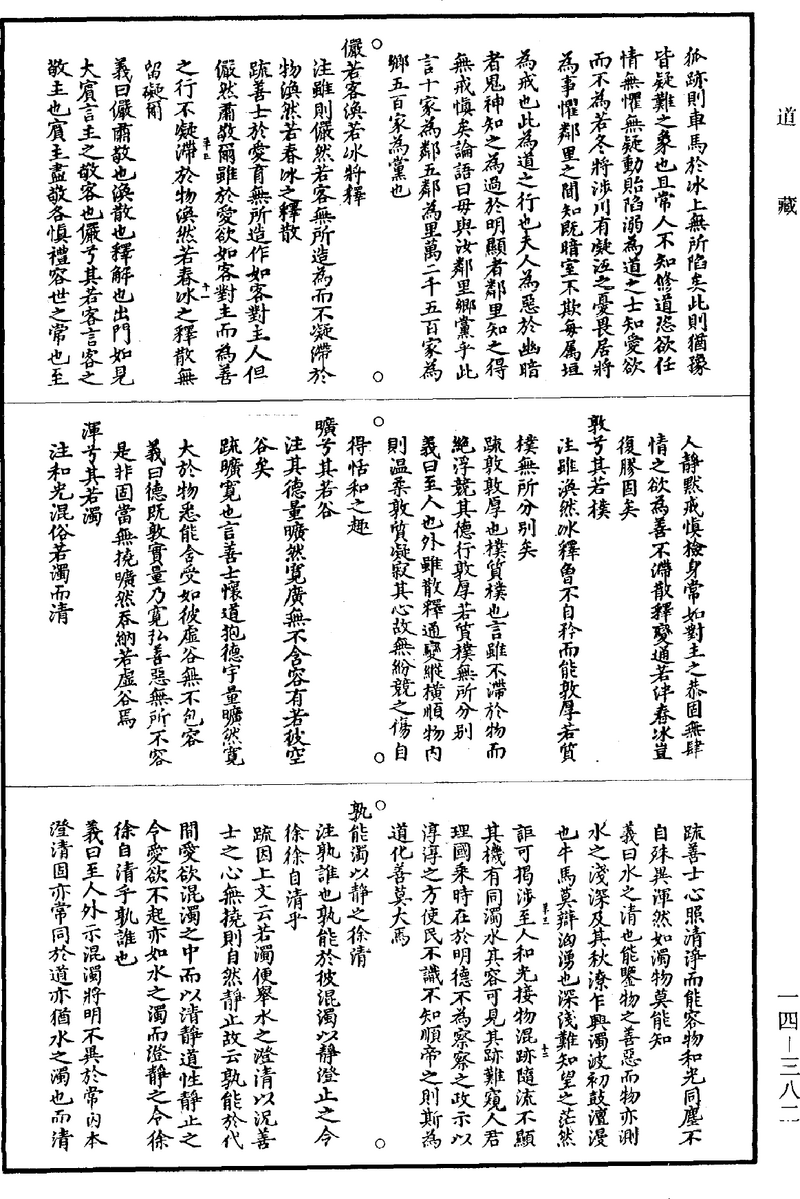 道藏
狐跡則車馬於冰上無所陷矣此則猶豫
皆疑難之象也且常人不知修道恣欲任
情無懼無疑動貽陷溺為道之士知愛欲
而不為若冬將涉川有凝沍之憂畏居將
為事懼鄰里之間知既暗室不欺每屬垣
為戒也此為道之行也夫人為惡於幽暗
者鬼神知之為過於明顯者鄰里知之得
無戒慎矣論語曰毋與汝鄰里鄉黨乎此
言十家為鄰五鄰為里萬二千五百家為
鄉五百家為黨也
儼若客渙若冰將釋
注雖則儼然若客無所造為而不凝滯於
物渙然若春冰之釋散
疏善士於愛育無所造作如客對主人但
儼然肅敬爾雖於愛欲如客對主而為善
之行不凝滯於物渙然若春冰之釋散無
留礙爾
義曰儼肅敬也渙散也釋解也出門如見
大賓言主之敬客也儼兮其若客言客之
敬主也賓主盡敬各慎禮容世之常也至
人靜默戒慎檢身常如對主之恭固無肆
情之欲為善不滯散釋變通若泮春冰豈
復膠固矣
敦兮其若樸
注雖渙然冰釋曾不自矜而能敦厚若質
樸無所分別矣
疏敦敦厚也樸質樸也言雖不滯於物而
絕浮競其德行敦厚若質樸無所分別
義曰至人也外雖散釋通變縱橫順物內
則溫柔敦質凝寂其心故無紛競之傷自
得恬和之趣
曠兮其若谷
注其德量曠然寬廣無不含容有若彼空
谷矣
疏曠寬也言善士懷道抱德宇量曠然寬
大於物悉能含受如彼虛谷無不包容
義曰德既敦實量乃寬弘善惡無所不容
是非固當無撓曠然吞納若虛谷焉
渾兮其若濁
注和光混俗若濁而清
疏善士心照清淨而能容物和光同塵不
自殊異渾然如濁物莫能知
義曰水之清也能鑒物之善惡而物亦測
水之淺深及其秋潦乍興濁波初鼓澶漫
也牛馬莫辯洶湧也深淺難知望之茫然
詎可揭涉至人和光接物混跡隨流不顯
其機有同濁水其容可見其跡難窺人君
理國乘時在於明德不為察察之政示以
淳淳之方使民不識不知順帝之則斯為
道化善莫大焉
孰能濁以靜之徐清
注孰誰也孰能於彼混濁以靜澄止之令
徐徐自清乎
疏因上文云若濁便舉水之澄清以況善
士之心無撓則自然靜止故云孰能於代
間愛欲混濁之中而以清靜道性靜止之
令愛欲不起亦如水之濁而澄靜之令徐
徐自清乎孰誰也
義曰至人外示混濁將明不異於常內本
澄清固亦常同於道亦猶水之濁也而清
一四—三八二